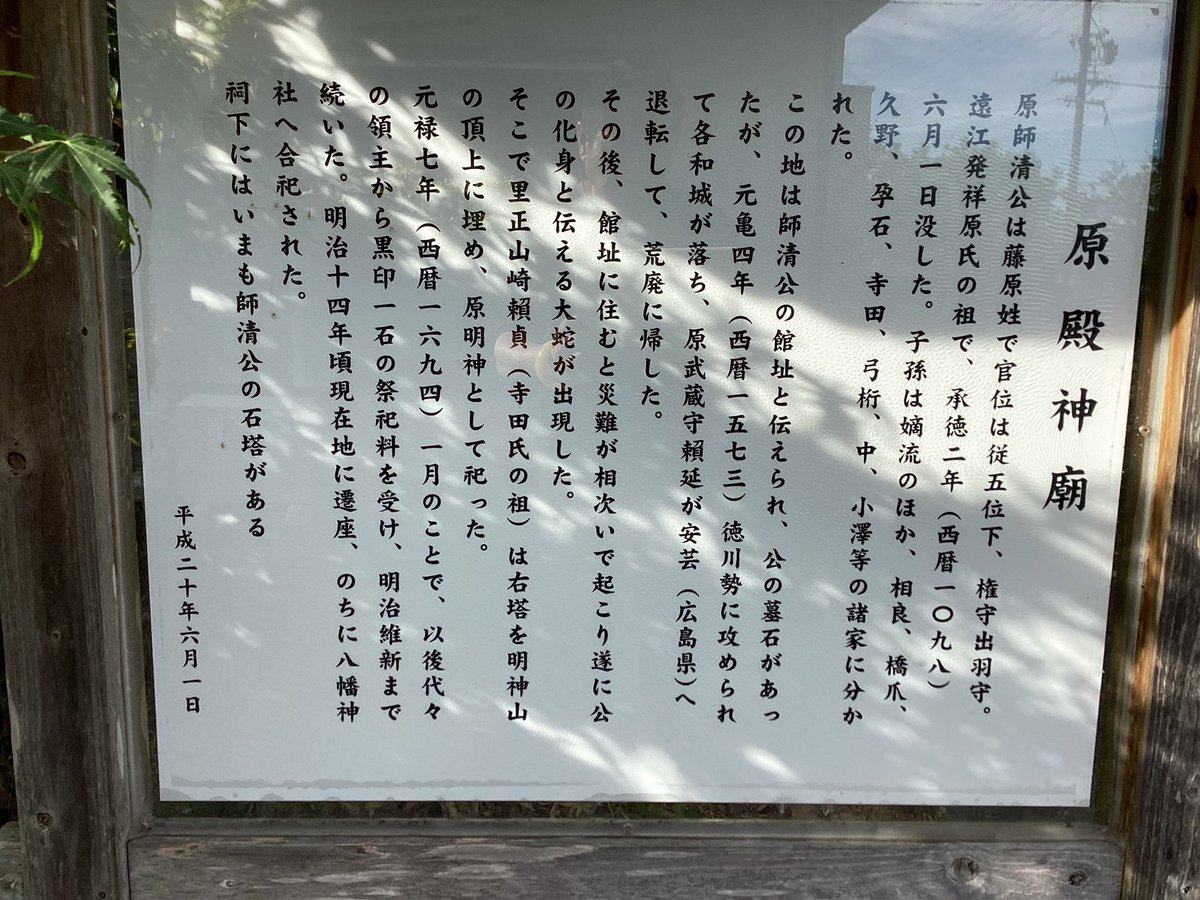 原殿神廟
原師清公は藤原姓で官位は従五位下、権守出羽守。
遠江発祥原氏の祖で、承徳二年（西暦一〇九八）
六月一日没した。子孫は嫡流のほか、相良、橋爪、
久野、孕石、寺田、弓桁、中、小澤等の諸家に分か
れた。
この地は師清公の館址と伝えられ、公の墓石があっ
たが、元亀四年（西暦一五七三）徳川勢に攻められ
て各和城が落ち、原武蔵守頼延が安芸（広島県）へ
退転して、荒廃に帰した。
その後、館址に住むと災難が相次いで起こり遂に公
の化身と伝える大蛇が出現した。
そこで里正山崎賴貞（寺田氏の祖）は右塔を明神山
の頂上に埋め、原明神として祀った。
元禄七年（西暦一六九四）一月のことで、以後代々
の領主から黒印一石の祭祀料を受け、明治維新まで
続いた。明治十四年頃現在地に遷座、のちに八幡神
社へ合祀された。
祠下にはいまも師清公の石塔がある
平成二十年六月一日